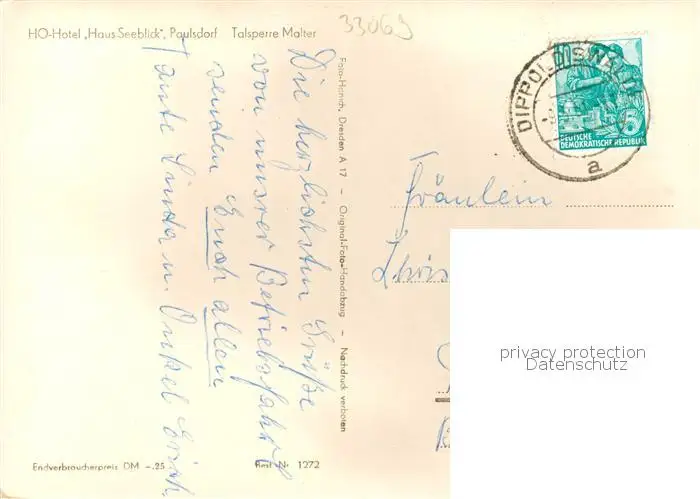 HO-Hotel „Haus Seeblick", Paulsdorf Talsperre Malter
33069
Die herzlichsten Grüße
von unserer Betriebsfahrt
senden Euch allen
Tante Linda u. Onkel Erich.
Foto-Hanich, Dresden A 17 – Original-Foto-Handabzug – Nachdruck verboten
DIPPOLDISWALDE
a
DEUTSCHE
DEMOKRATISCHE REPUBLIK
Fräulein
privacy protection
Datenschutz
Endverbraucherpreis DM –.25 Best.-Nr. 1272